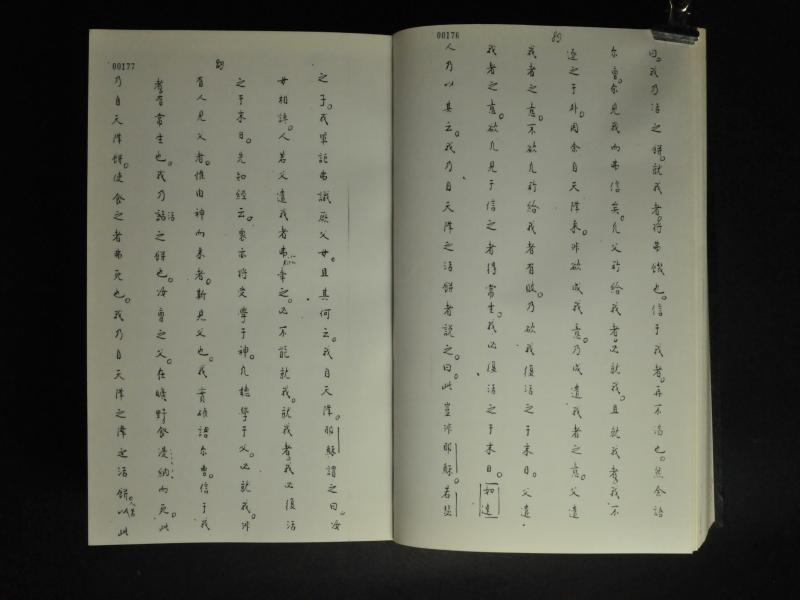 00176
曰。我乃活之餅。就我者。將弗饑也。信于我者。再不渴也。然余語
尔曹。尔見我而弗信矣。凡父所給我者。必就我。且就我者。我不
逐之于外。因余自天降來。非欲成我意。乃成遣我者之意。父遣
我者之意。不欲凡所給我者有敗。乃欲我復活之于末日。父遣
我者之意。欲凡見子信之者得常生。我必復活之于末日。如達
人乃以其云。我乃自天降之活餅者說之。曰。此豈非耶穌。若瑟
00177
之子。我輩詎弗識厥父母。且其何云。我自天降。耶穌謂之曰。汝
毋相諍。人若父遣我者弗牽之。必不能就我。就我者。我必復活
之于末日。先知經云。眾示將受學于神。凡聽學于父。必就我。非
有人見父者。惟由神而来者。斯見父也。我實確語尔曹。信于我
者有常生也。我乃活之餅也。汝曹之父。在曠野食漫納而死。此
乃自天降餅。使食之者弗死也。我乃自天降之活餅。以此